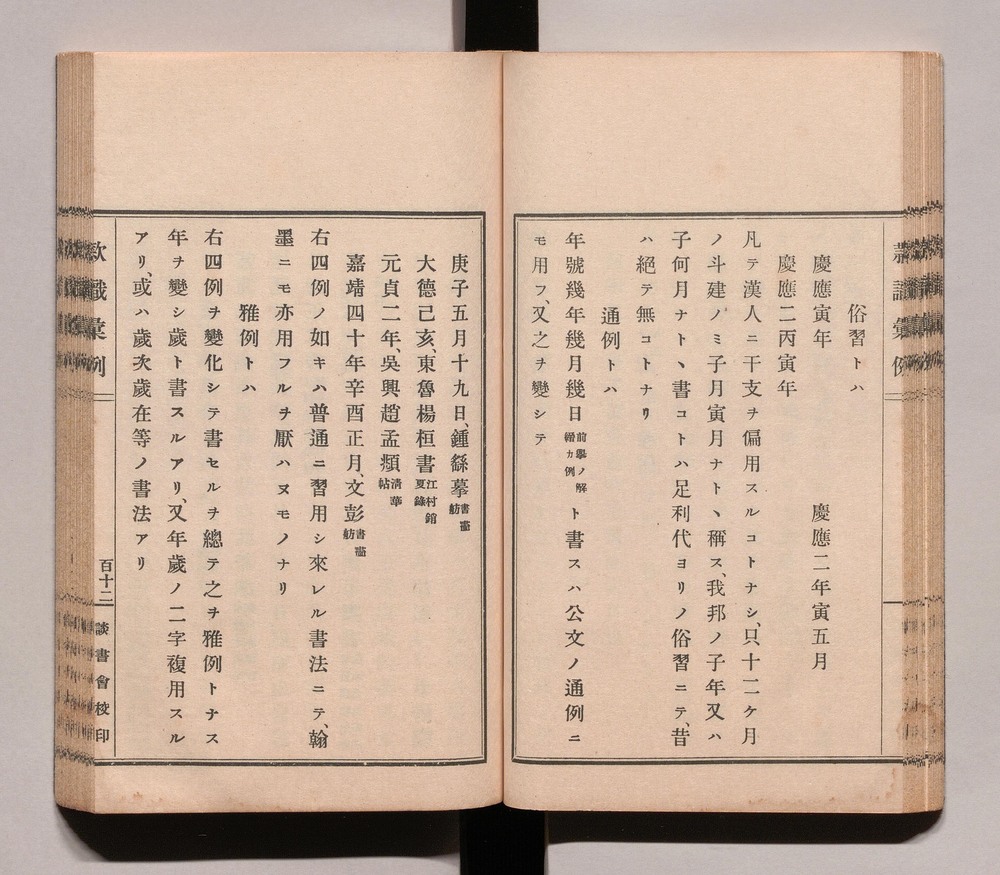 俗習トハ
慶應寅年　慶應二年寅五月
慶應二丙寅年
凡テ漢人ニ干支ヲ偏用スルコトナシ、只十二ケ月
ノ斗建ノミ子月寅月ナトヽ稱ス、我邦ノ子年又ハ
子何月ナトヽ書コトハ足利代ヨリノ俗習ニテ、昔
ハ絕テ無コトナリ
通例トハ
年號幾年幾月幾日前擧ノ解縉カ例ト書スハ公文ノ通例ニ
モ用フ、又之ヲ變シテ
庚子五月十九日、鍾繇摹書畵舫
大德己亥、東魯楊桓書江村銷夏錄
元貞二年、吳興趙孟頫淸華帖
嘉靖四十年辛酉正月、文彭書畵舫
右四例ノ如キハ普通ニ習用シ來レル書法ニテ、翰
墨ニモ亦用フルヲ厭ハヌモノナリ
雅例トハ
右四例ヲ變化シテ書セルヲ總テ之ヲ雅例トナス
年ヲ變シ歲ト書スルアリ、又年歲ノ二字複用スル
アリ、或ハ歲次歲在等ノ書法アリ
款識彙例
百十二
談書會校印